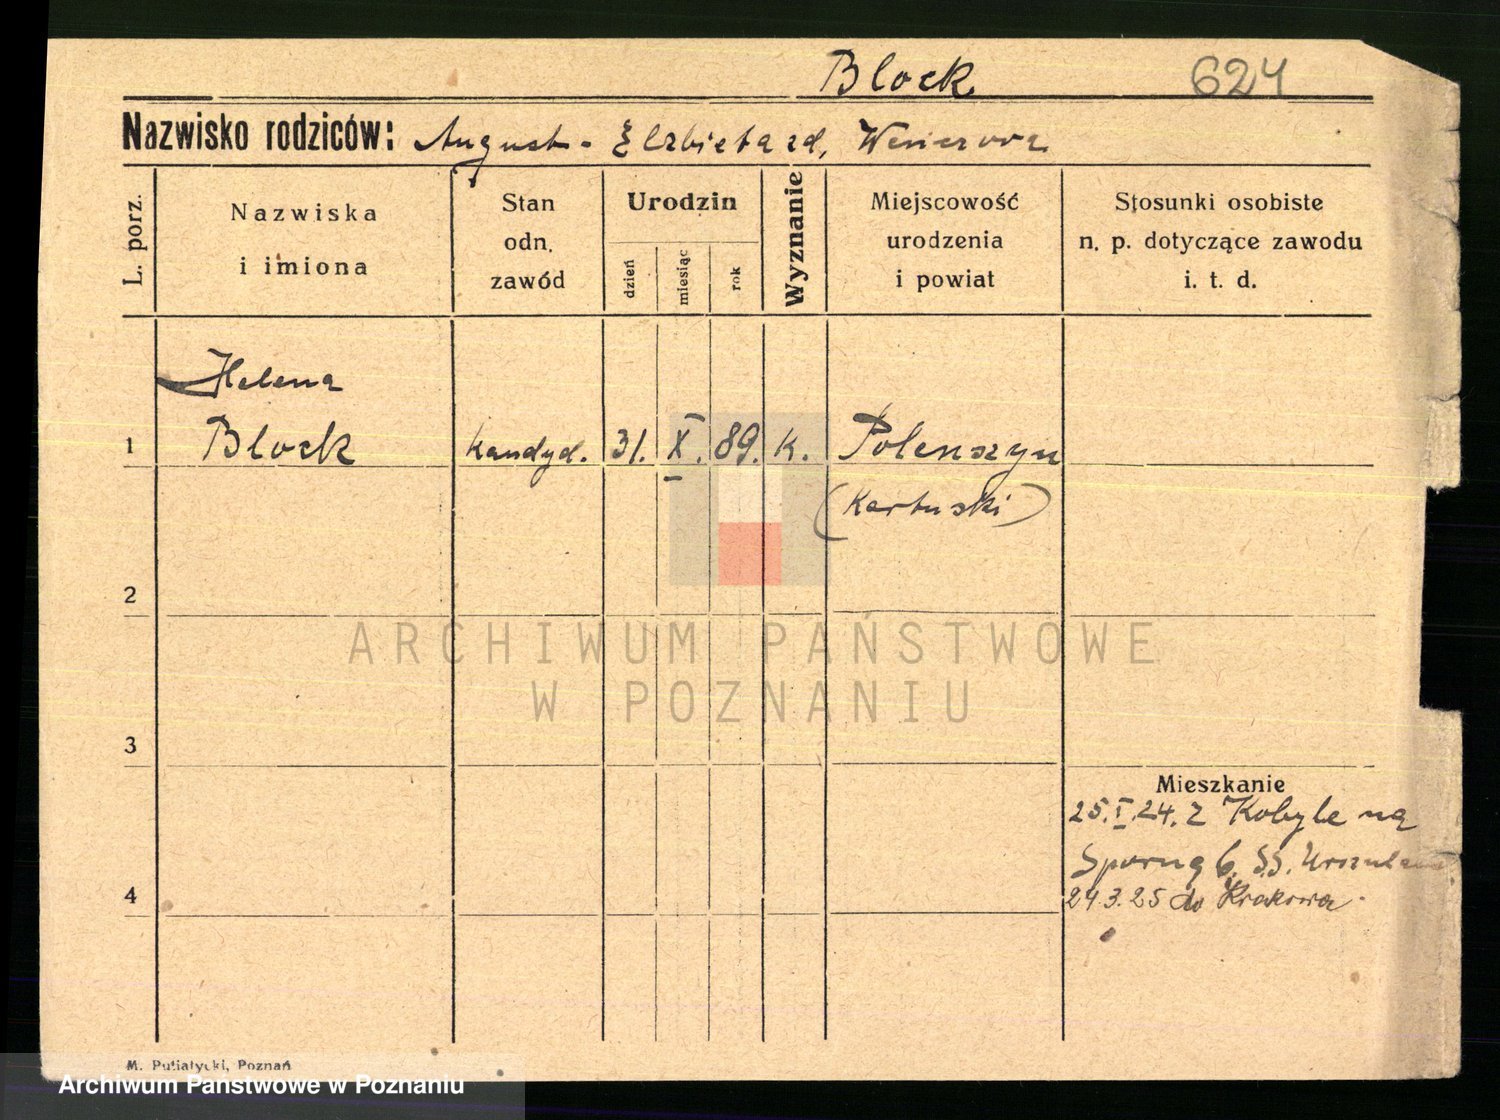 Block 624
Nazwisko rodziców: August - Elżbieta zd.
L. porz.
Nazwiska
i imiona
Stan
odn.
zawód
Urodzin
dzień
miesiąc
rok
Wyznanie
Miejscowość
urodzenia
i powiat
Stosunki osobiste
n. p. dotyczące zawodu
i. t. d.
Helena
1 Block kandyd. 31. X. 89. k. Polenszyn
(Kartuski)
2
ARCHIWUM PAŃSTWOWE
W POZNANIU
3
Mieszkanie
25.I.24. z Kobyle na
Sporną 6. S.S.
4 24.3.25 do Krakowa.
M. Putiatycki, Poznań
Archiwum Państwowe w Poznaniu